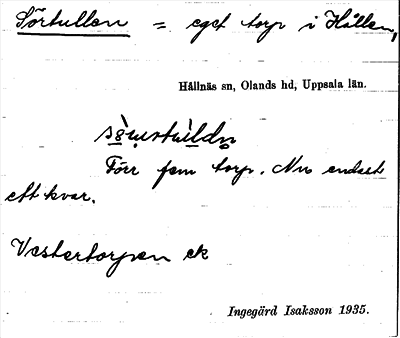 Sörtullen = eget torp i Hållen,
Hållnäs sn, Olands hd, Uppsala län.
Förr fem torp. Nu endast
ett kvar.
Vestertorpen ek
Ingegärd Isaksson 1935.